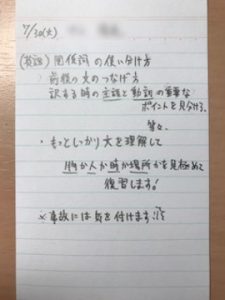 7/30(火)
(英語) 関係詞の使い分け方
・前後の文のつなげ方
訳する時の主語と動詞の重要な
ポイントを見分ける。
等々.
・もっとしっかり文を理解して
物か人か時か場所かを見極めて
復習します!
※事故には気を付けます!!